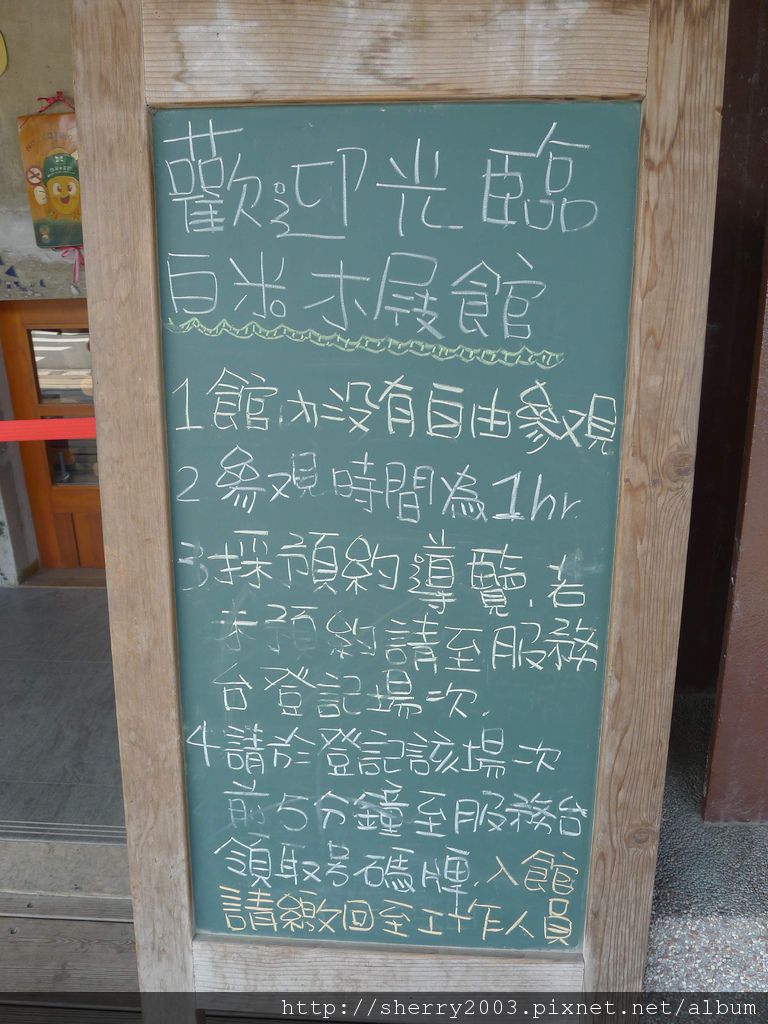 歡迎光臨
白米木展館
1館內沒有自由參观
2參观時間為1hr
3採預約導覽.若
未預約請至服務
台登記場次.
4請於登記該場次
前5分鐘至服務台
領取号碼牌.入館
請繳回至工作人員
http://sherry2003.pixnet.net/album